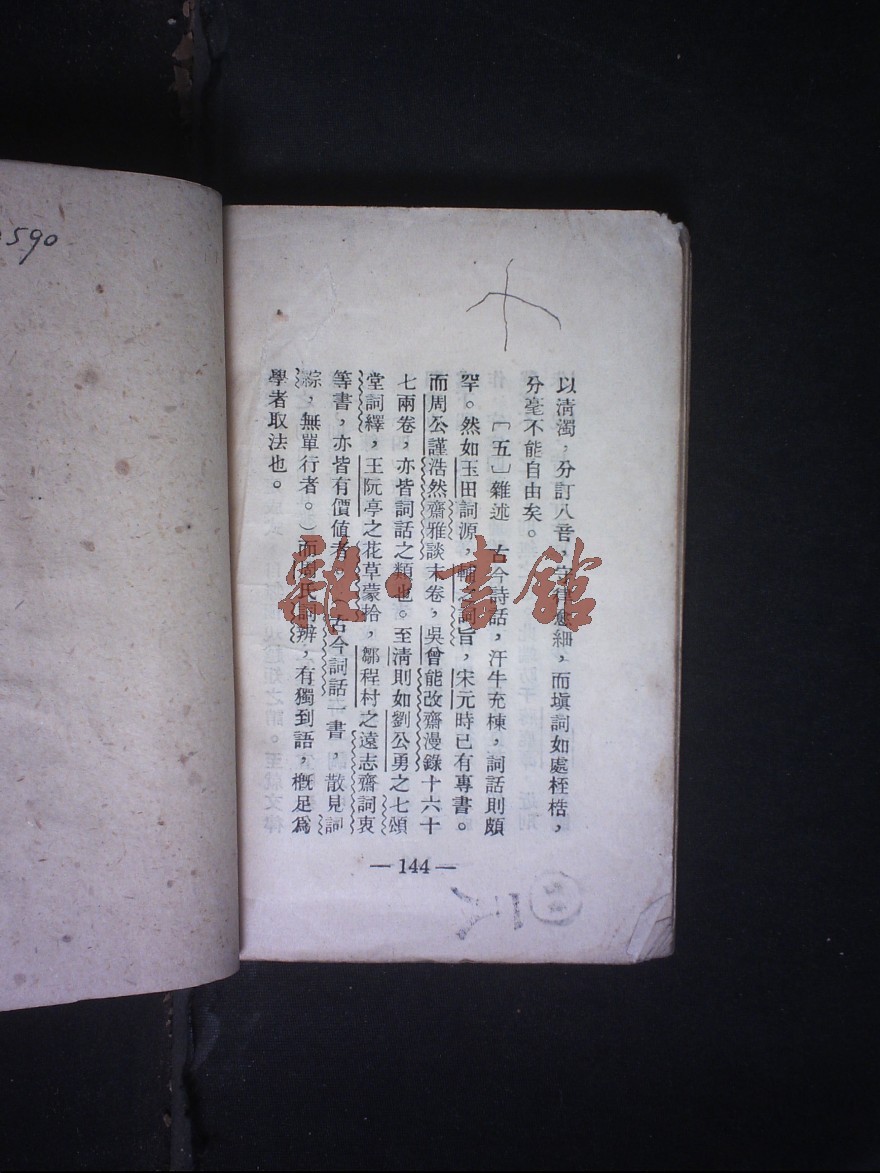 590
以淸濁，分訂八音，字律愈細，而塡詞如處桎梏，
分毫不能自由矣。
〔五〕雜述　古今詩話，汗牛充棟，詞話則頗
罕。然如玉田詞源，輔之詞旨，宋元時已有專書。
而周公謹浩然齋雅談末卷，吳曾能改齋漫錄十六十
七兩卷，亦皆詞話之類也。至淸則如劉公勇之七頌
堂詞繹，王阮亭之花草蒙拾，鄒程村之遠志齋詞衷
等書，亦皆有價値者。（古今詞話一書，散見詞
綜，無單行者。）而周氏詞辨，有獨到語，槪足爲
學者取法也。
— 144 —
雜·書館